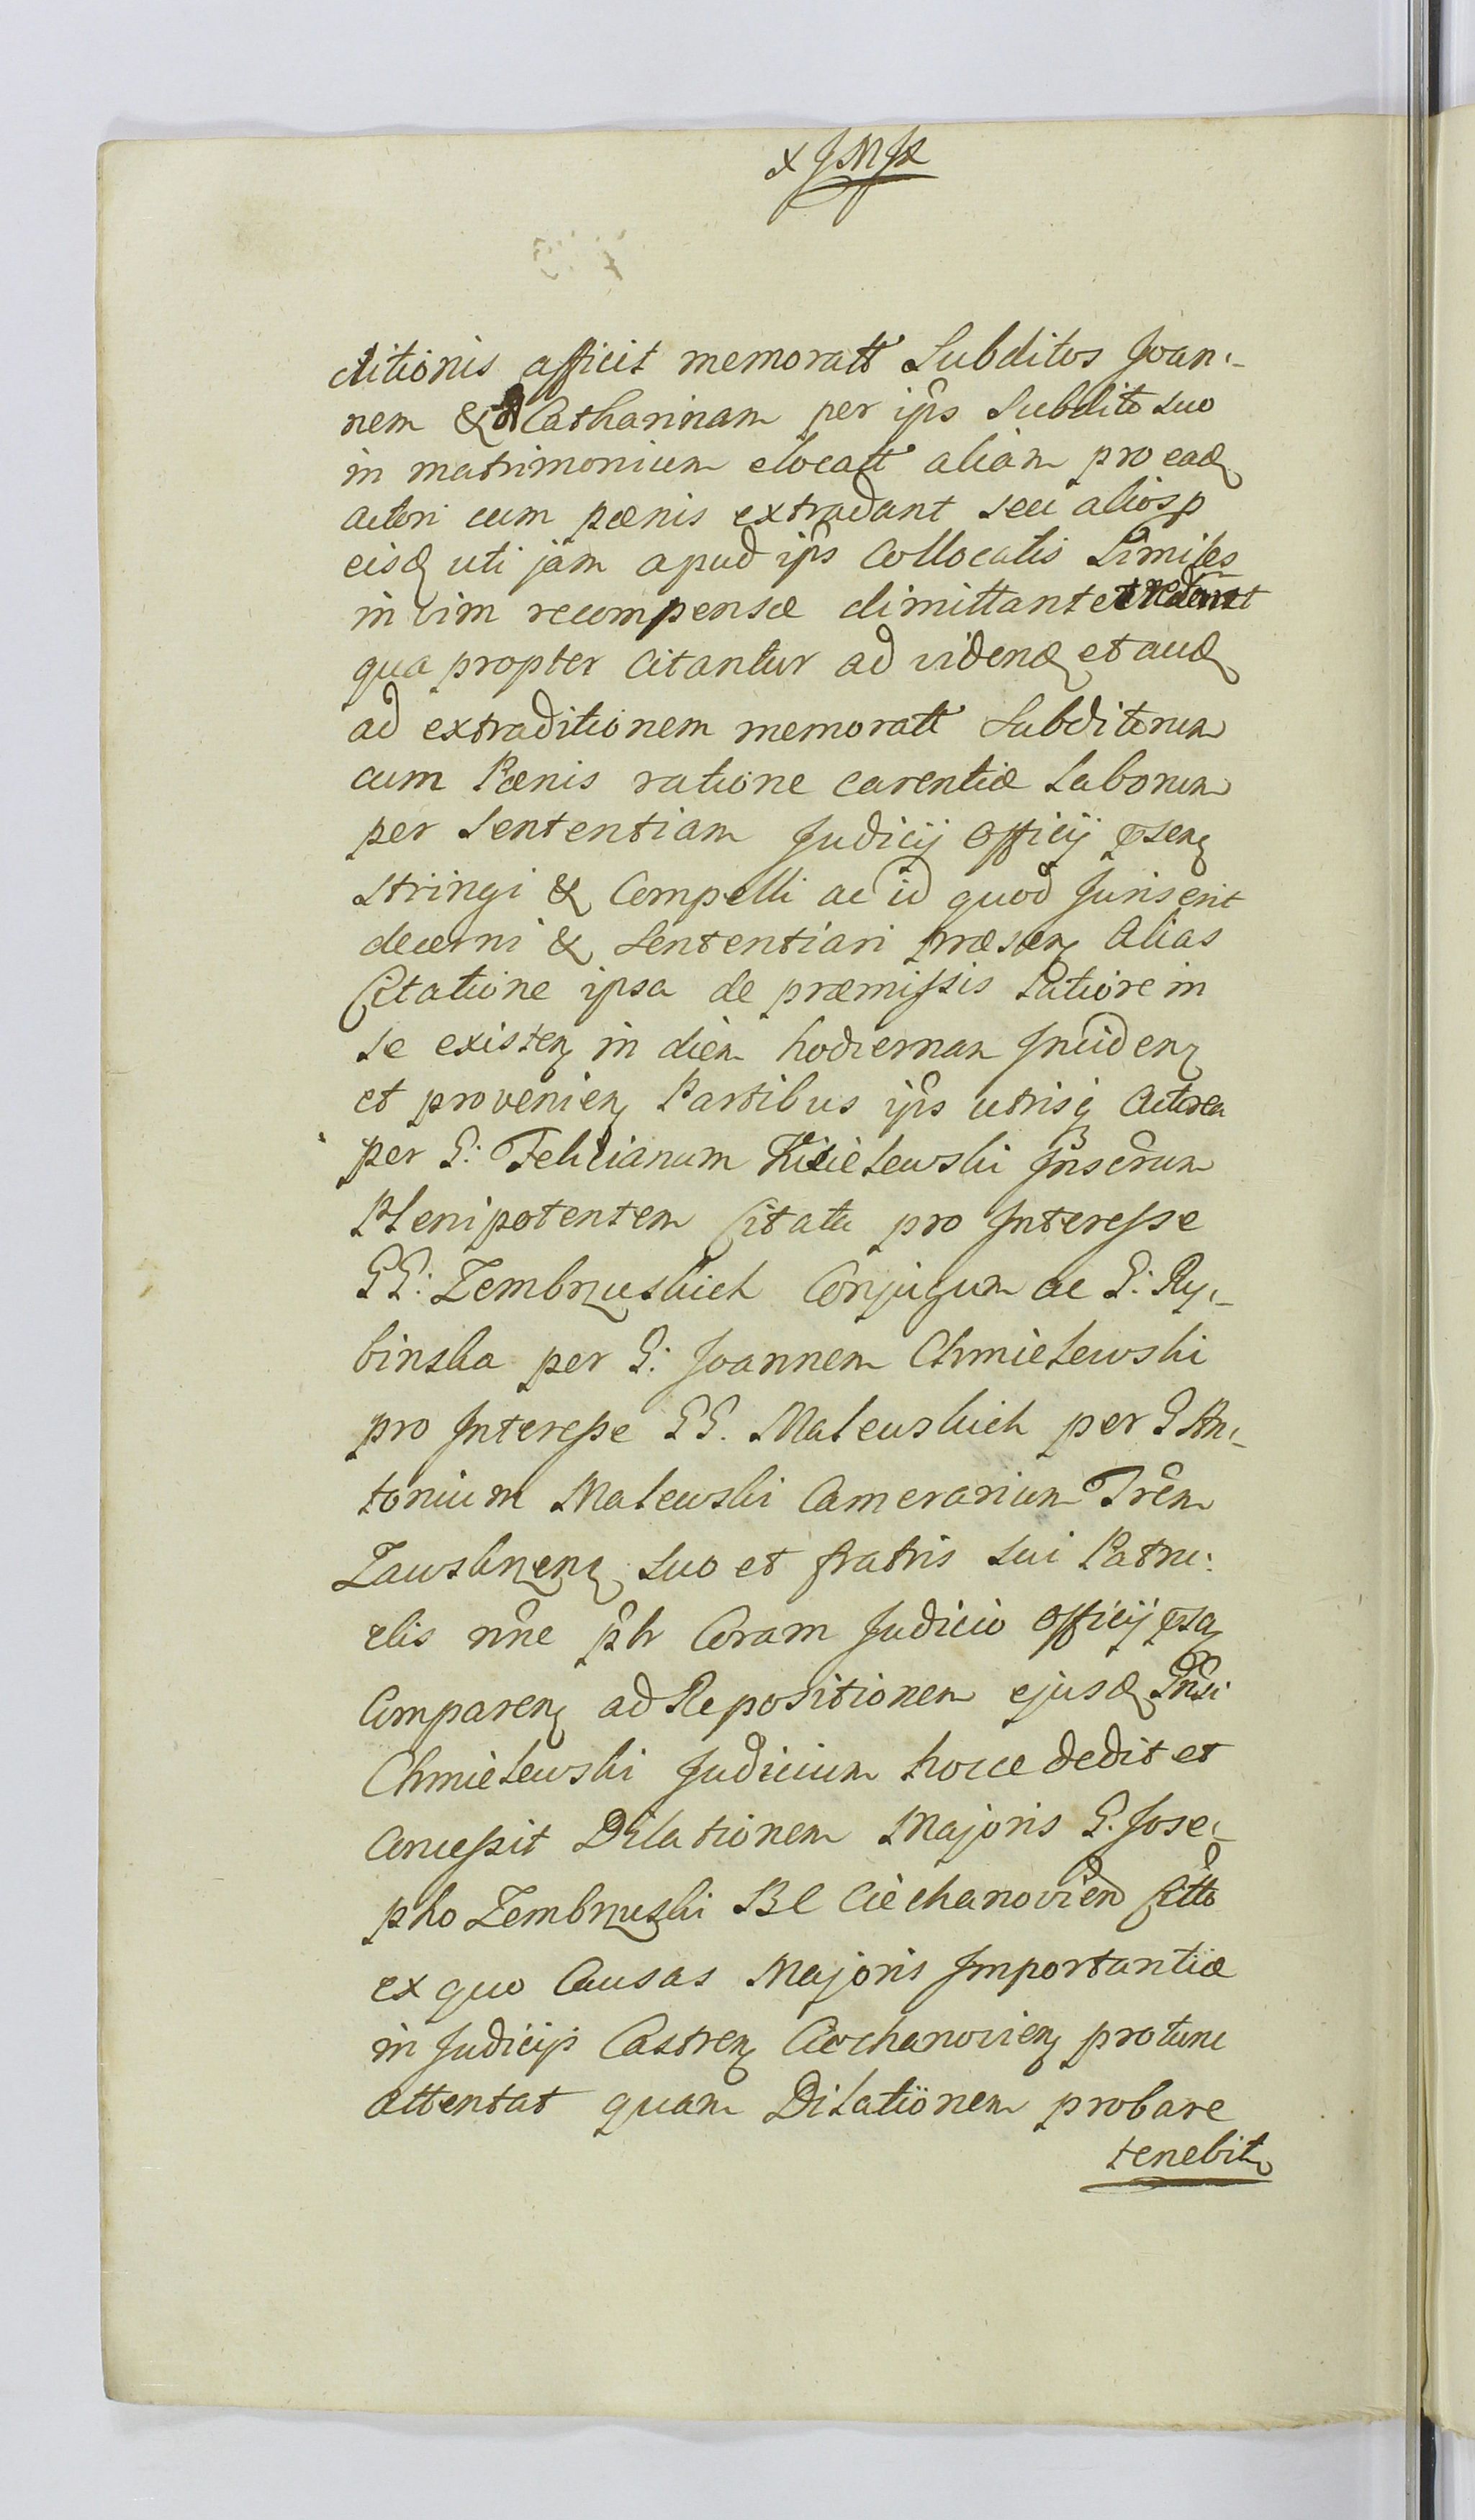 ditionis afficit memoratt Subditos Joan-
nem & Catharinam per ips Subdito suo
in matrimonium elocatt aliam pro ead
actori cum pœnis extradant seu aliosp
eisd uti jam apud ips Collocatis Similes
in vim recompensæ dimittant et
qua propter Citantur ad videnđ et auđ
ad extraditionem memoratt Subditorum
cum Pœnis ratione carentiæ Laborum
per Sententiam Judicij Officij
stringi & Compelli ac id quod Juris erit
decerni & Sententiari præsen Alias
Citatione ipsa de præmissis Latiore in
se existen in diem hodiernam Inciden
et provenien Partibus ips utrisq Actorea
per G: Felicianum Kisielewski
Plenipotentem Citata pro Interesse
GG: Zembrzuskich Conjugum ac G: Ry-
binska per G: Joannem Chmielewski
pro Interesse GG. Malewskich per G An-
tonium Malewski Camerarium Trem
Zawskrzen suo et fratris sui Patru-
elis nne Coram Judicio Officij
Comparen ad Repositionem ejusd
Chmielewski Judicium hocce dedit et
Concessit Dilationem Majoris G. Jose-
pho Zembrzuski B C Ciechanovien Citto
ex quo Causas Majoris Importantiæ
in Judicijs Castren Ciechanovien pro tunc
attentat quam Dilationem probare
tenebit